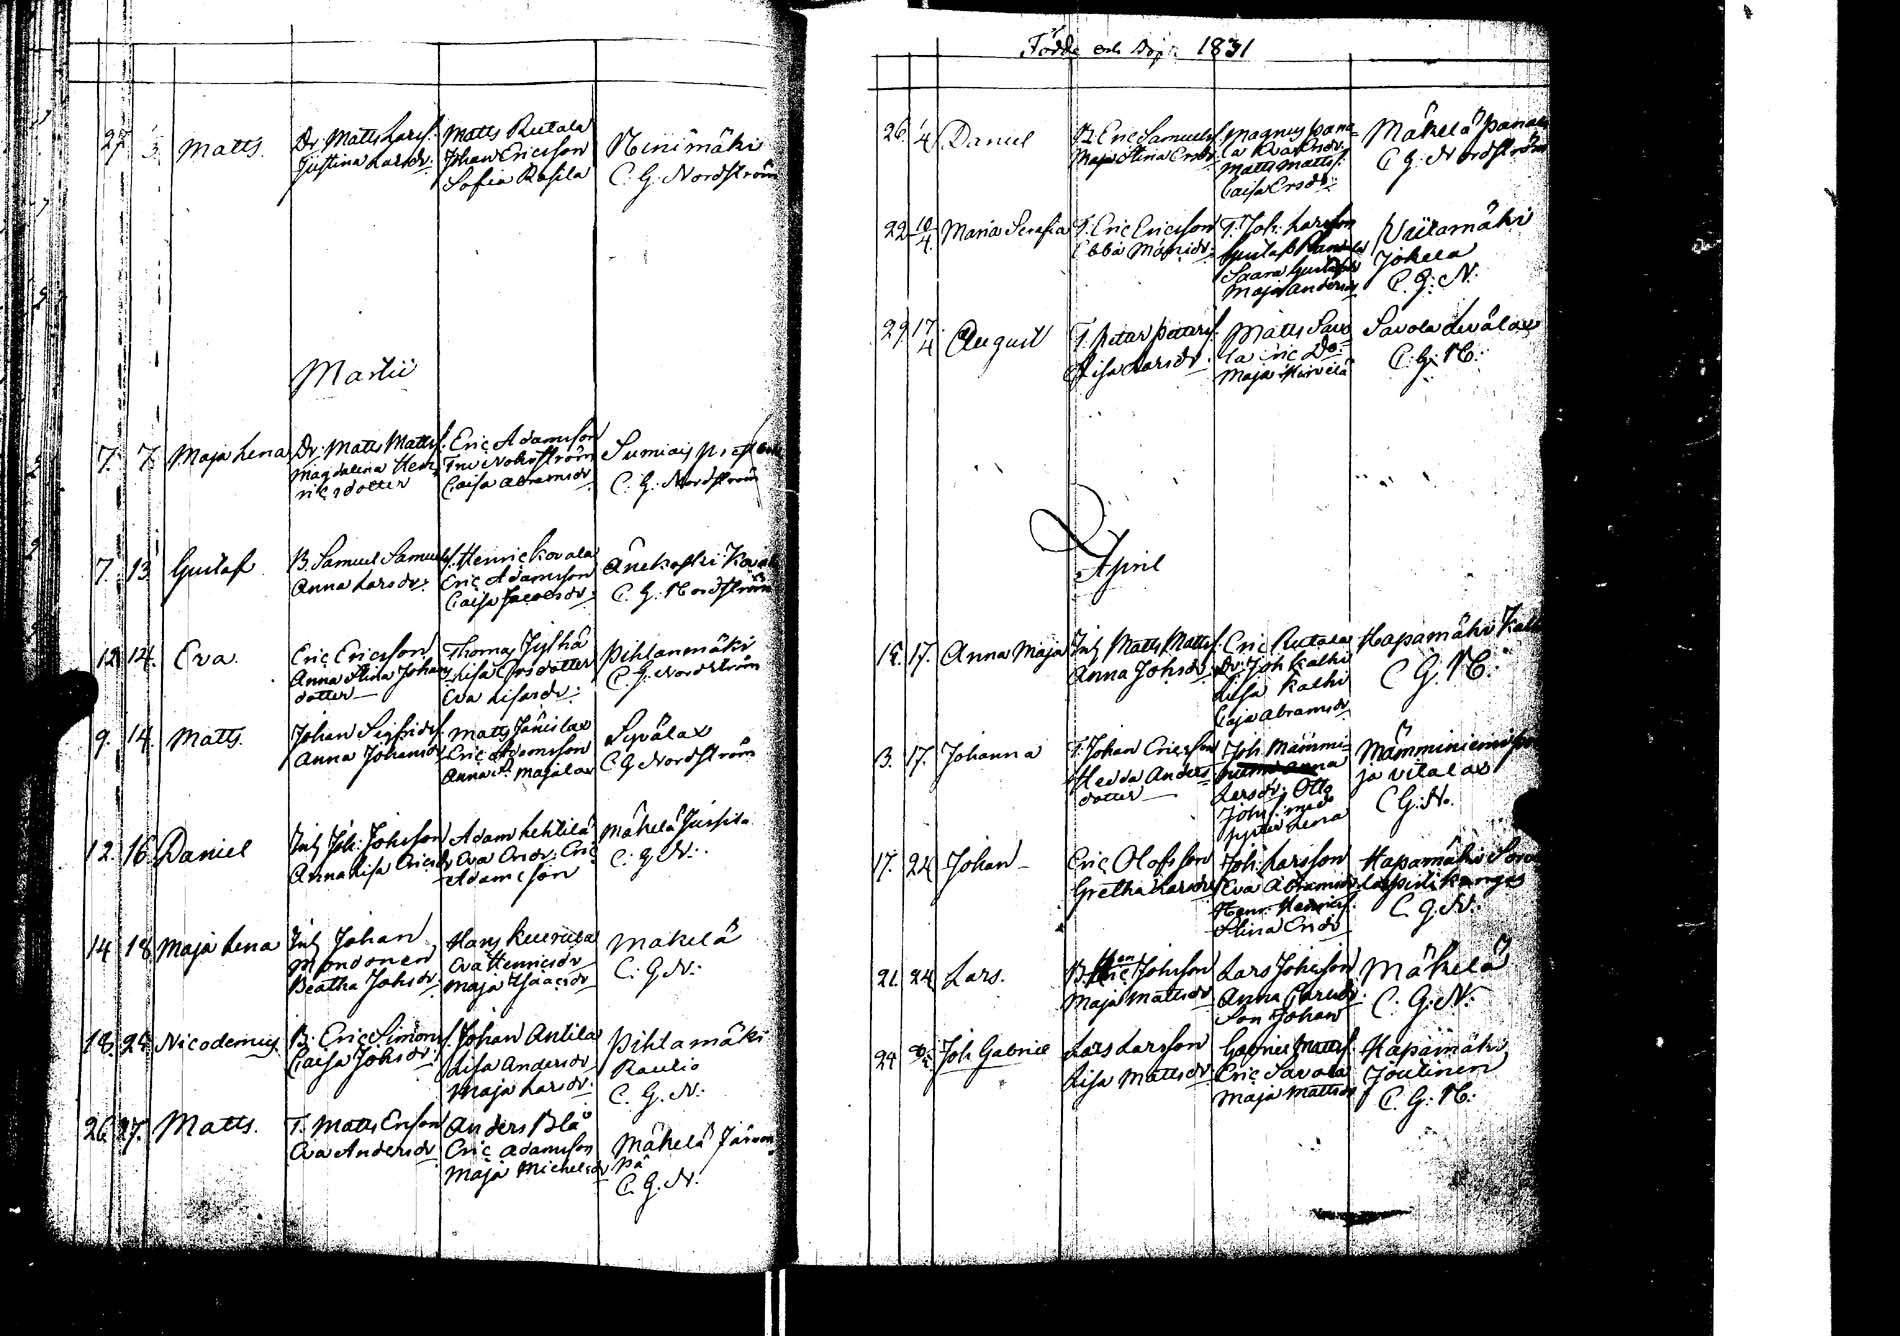 27 1/3 Matts. Dr. Matts Larss. Matts Rutala Niinimäki
Justina Larsdr. Johan Ericsson C. G. Nordström
Sofia Rasila
Martii
7. 7. Maja Lena Dr. Matts Mattss. Eric Adamsson Sumiais
Magdalena Hen- Fru Nordström C. G. Nordström
ricsdotter Caisa Abramsdr.
7. 13 Gustaf B. Samuel Samuelss. Henric Kovala Änekoski
Anna Larsdr. Eric Adamsson C. G. Nordström
Caisa Jacobsdr.
12 14. Eva. Eric Ericsson Thomas Jylhä Pihlanmäki
Anna Stina Johans Lisa Ersdotter C. G. Nordström
dotter Eva Lisasdr.
9. 14. Matts. Johan Sigfrids. Matts Syvälax
Anna Johansdr. Eric Adamsson C G Nordström
Anna
12. 16. Daniel Joh. Johsson Adam Lehtilä Mäkelä Jussila
Anna Lisa Ericsdr. Eva Ersdr. Eric C. G. N.
Adamsson
14 18 Maja Lena Johan Hans Mäkelä
Mondonen Eva Henricsdr C. G. N.
Beatha Johsdr. Maja Isaacsdr
18. 24 Nicodemus B. Eric Simonss. Johan Antila Pihlamäki
Caisa Johsdr. Lisa Andersdr Raulio
Maja Larsdr. C. G. N.
26. 27. Matts. T. Matts Ersson Anders Blå Mäkelä
Eva Andersdr Eric Adamsson pä
Maja Michelsdr C. G. N.
Födde och Döpte 1831
26 1/4 Daniel B. Eric Samuelss. Magnus Pana- Mäkelä Panala
Maja Stina Ersdr. la Eva Ersdr. C G. Nordström
Matts Mattss.
Caisa Ersdr.
22 10/4. Maria Serafia T. Eric Ericsson T. Joh. Larsson Viitamäki
Ebba Matsdr. Gustaf Jokela
Saara Gustafsdr C. G. N.
Maja Andersdr
29 17/4 August T. Petter Petterss. Matts Savo- Savola
Lisa Larsdr. la Eric Do. C. G. N.
Maja Hirvelä
April
15. 17. Anna Maja Matts Mattss. Eric Rutala Hapamäki
Anna Johsdr. Dr. Joh Kalki C G. N.
Lisa Kalki
Caja Abramsdr
3. 17. Johanna T. Johan Ericsson Joh. Mämmi- Mämminiemi
Hedda Anders Anna ja vitalax
dotter Larsdr. Otto C G. N.
Johss. med
syster Lena
17. 24 Johan Eric Olofsson Joh. Larsson Hapamäki
Gretha Larsdr Eva Abramsdr C. G. N.
Henr. Henricss.
Stina Ersdr
21. 24 Lars. B. Hen Johsson Lars Johsson Mäkelä
Maja Mattsdr Anna C. G. N.
Son Johan
24 Joh Gabriel Lars Larsson Gabriel Mattss. Hapamäki
Lisa Mattsdr Eric Savola Joutinen
Maja Mattsdr C. G. N.